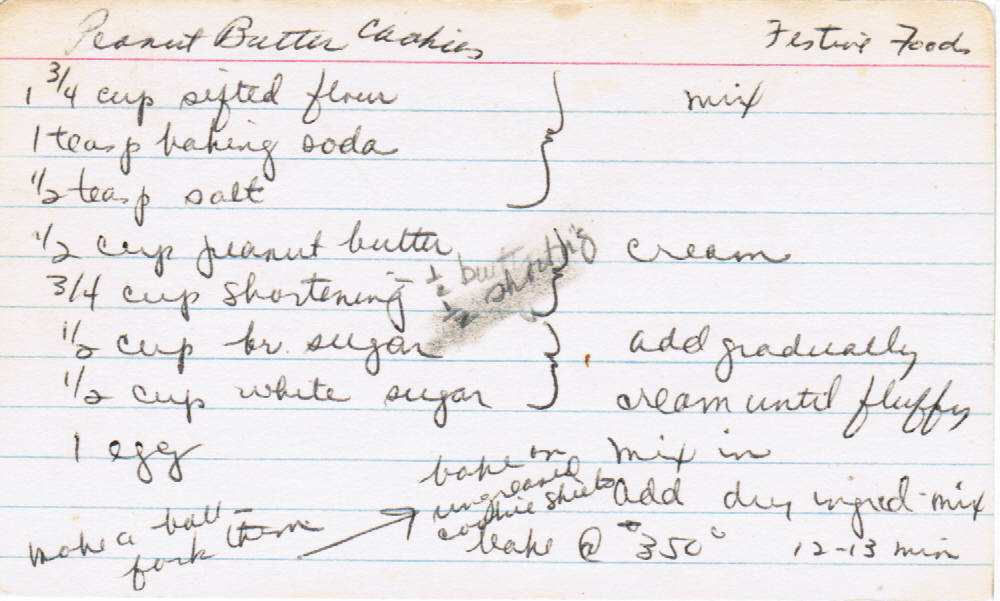 Peanut Butter Cookies
Festive Foods
1 3/4 cup sifted flour
mix
1 teasp baking soda
1/2 teasp salt
1/2 cup peanut butter
cream
3/4 cup shortening - 1/2 butt
1/2 shortng
1/2 cup br. sugar
add gradually
1/2 cup white sugar
cream until fluffy
1 egg
mix in
add dry ingred - mix
make a ball -
fork them
bake on
ungreased
cookie sheets
bake @ 350° 12-13 min